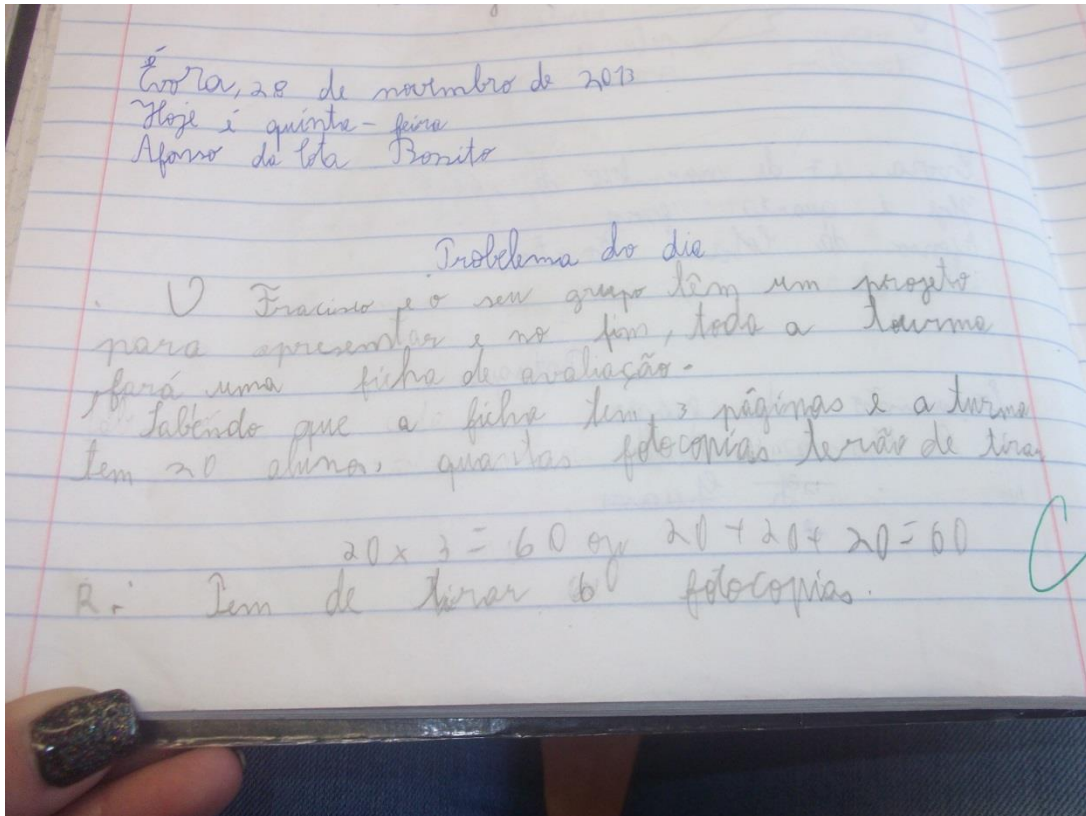 Évora, 28 de novembro de 2013
Hoje é quinta-feira
Afonso da Cota Bonito
Probelema do dia
O Fracisco e o seu grupo têm um projeto
para apresentar e no fim, toda a tourma
fará uma ficha de avaliação.
Sabendo que a ficha tem 3 páginas e a turma
tem 20 alunos, quantas fotocopias terão de tirar
20 x 3 = 60 ou 20 + 20 + 20 = 60
R.: Tem de tirar 6 fotocopias.
C